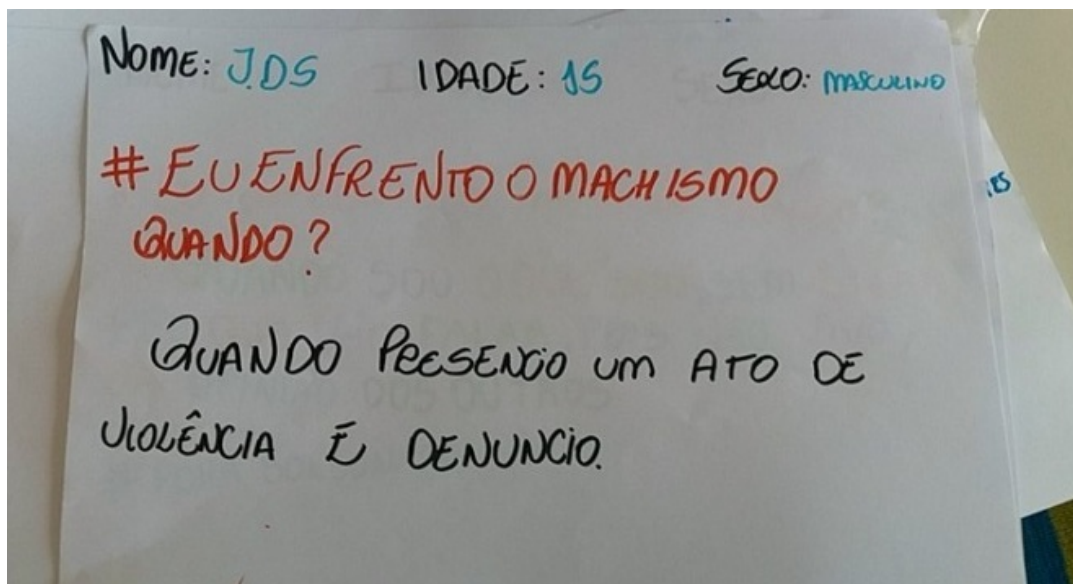 NOME: J.DS IDADE: 15 SEXO: MASCULINO
# EU ENFRENTO O MACHISMO
QUANDO?
QUANDO PRESENCIO UM ATO DE
VIOLÊNCIA E DENUNCIO.